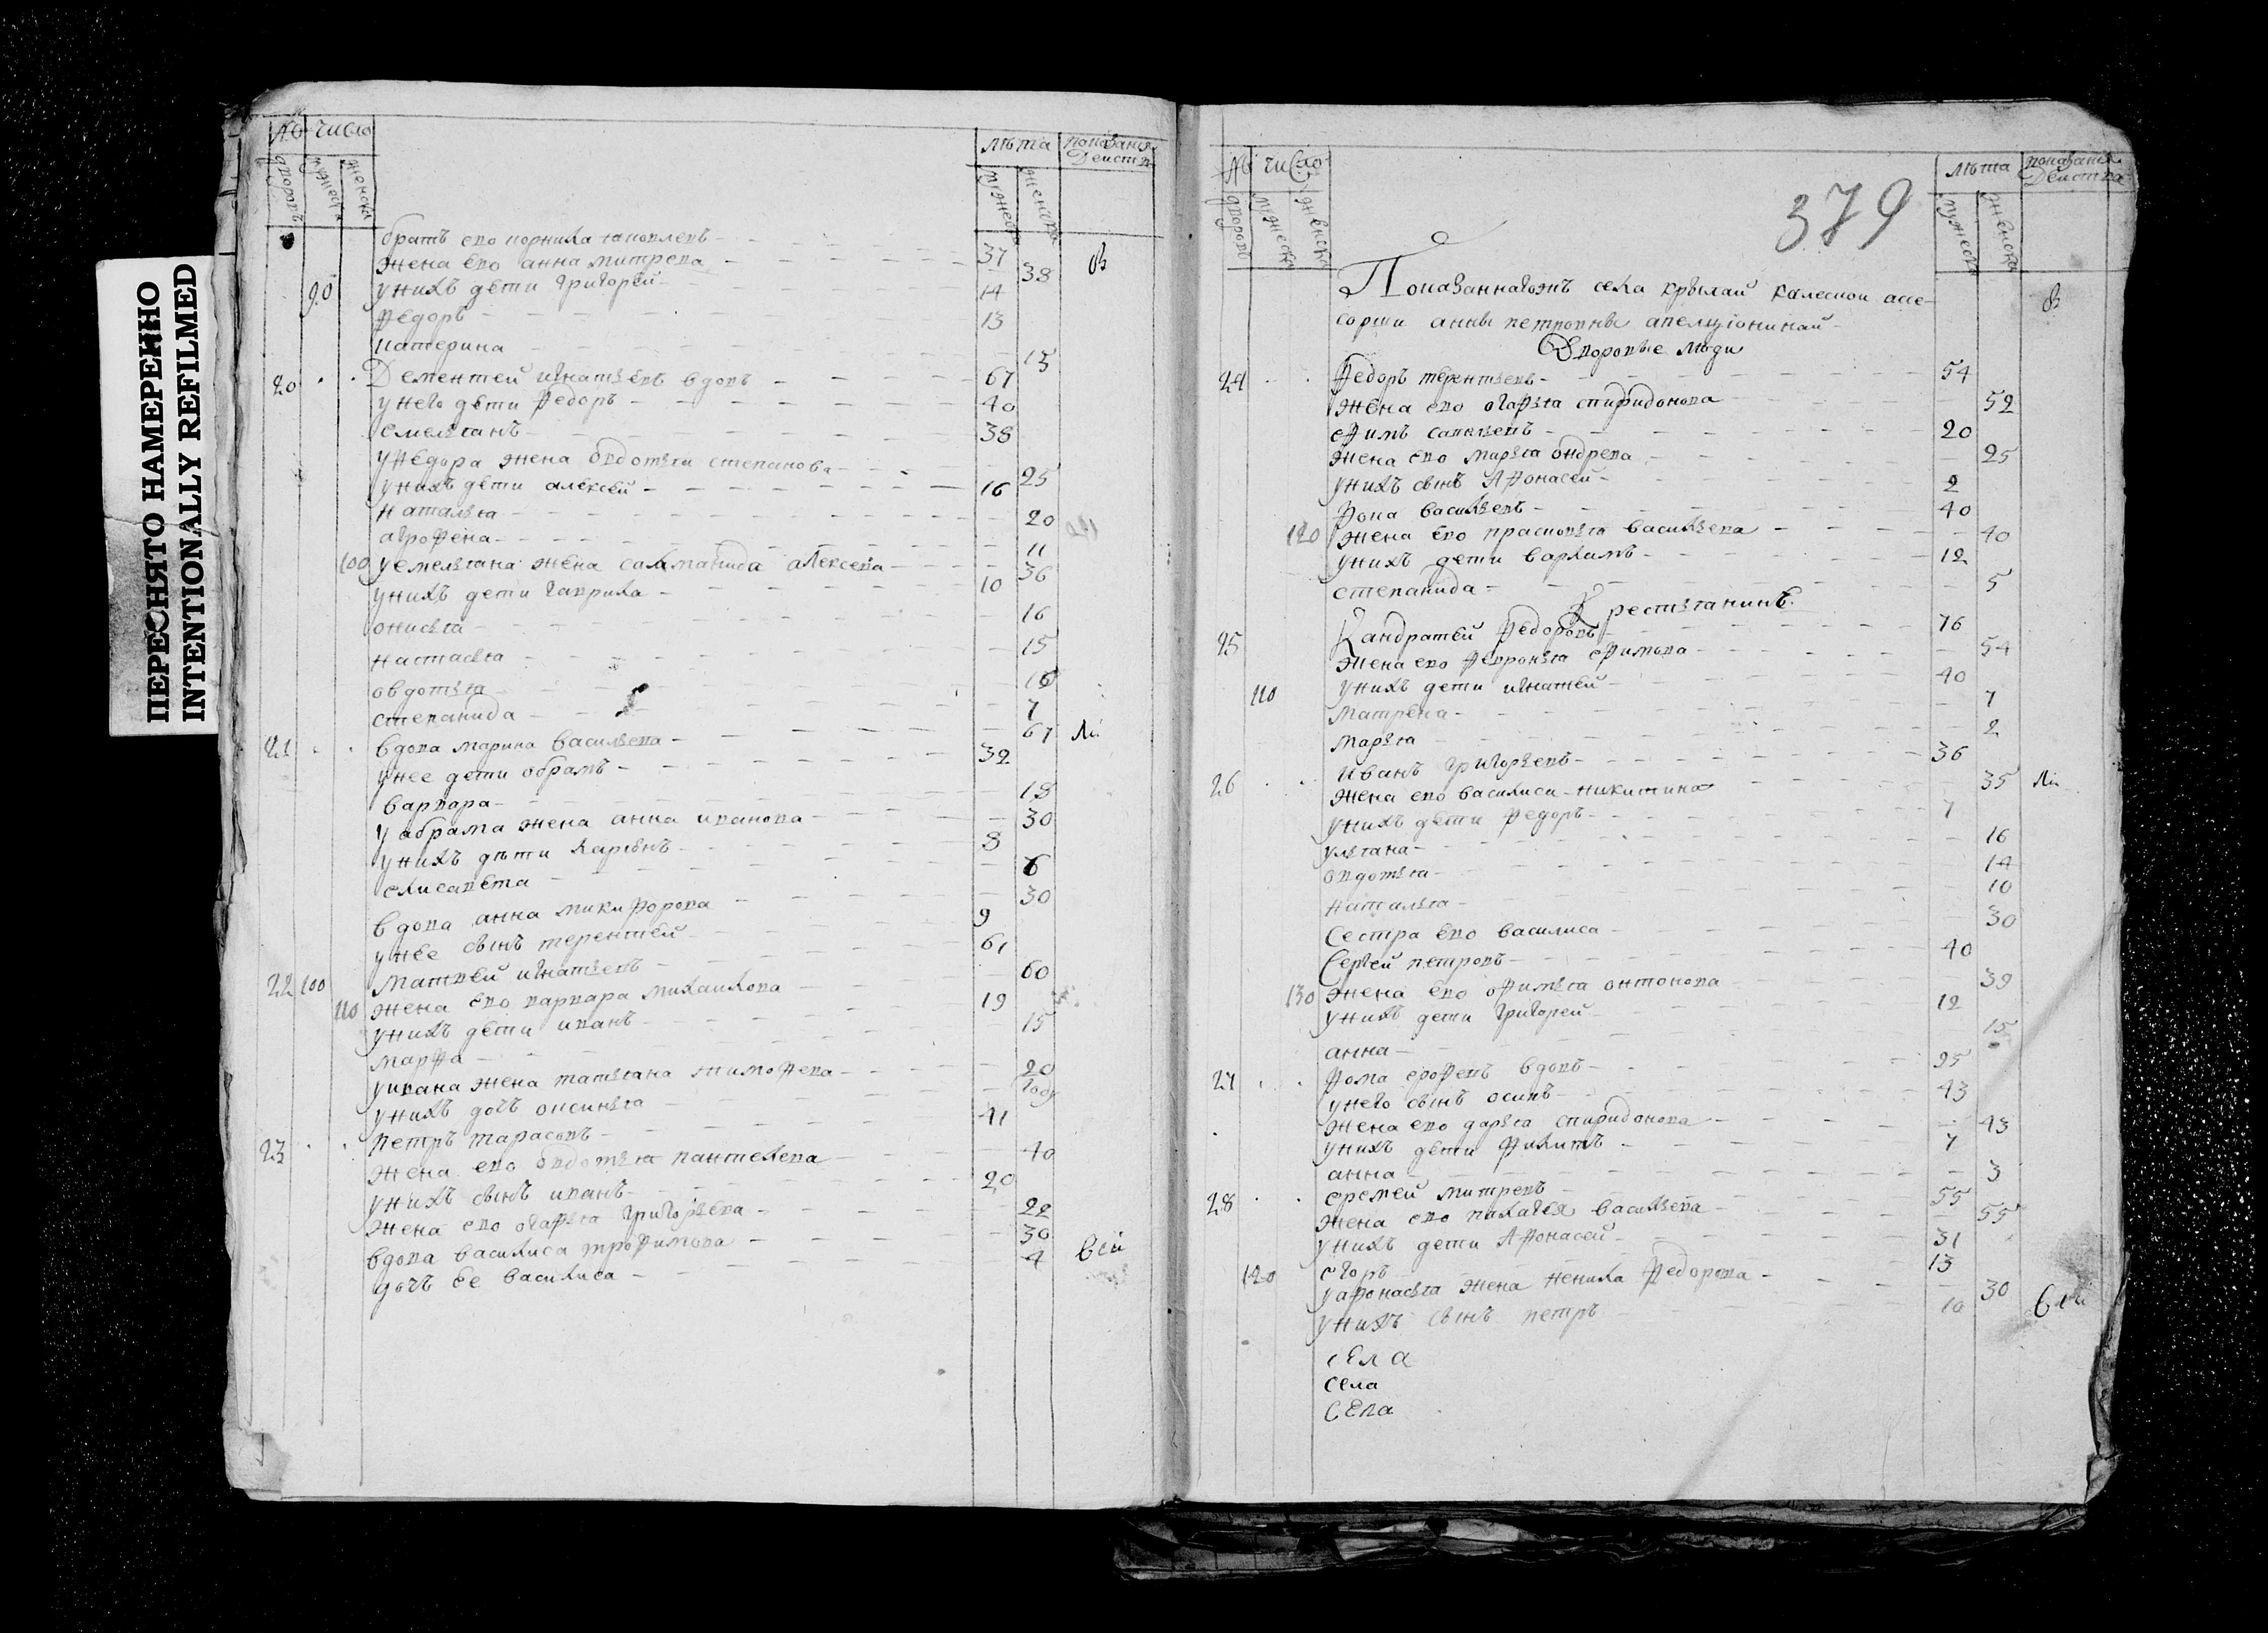 ПЕРЕСНЯТО НАМЕРЕННО
INTENTIONALLY REFILMED
№ число лѣта показания
дворовъ мужеска женска мужеска женска Действа
братъ ево корнила яковлевъ 37
жена ево анна митрева 38 Ов
90 у нихъ дети григорей 14
федоръ 13
катерина 15
20 Дементей игнатьевъ вдовъ 67
у него дети федоръ 40
емельянъ 38
у федора жена овдотья степанова 25
у нихъ дети алексей 16
наталья 20
агрофена 11
100 у емельяна жена саламанида алексева 36
у нихъ дети гаврила 10
онисья 16
настасья 15
овдотья 10
степанида 7
21 вдова марина васильева 67
у нее дети обрамъ 32
варвара 18
у абрама жена анна иванова 30
у нихъ дѣти 8
елисавета 6
вдова анна микифорова 30
у нее сынъ терентей 9
22 100 матвей игнатьевъ 61
110 жена ево варвара михаилова 60
у нихъ дети иванъ 19
марфа 15
у ивана жена татьяна тимофева 20
у нихъ дочь оксинья году
23 петръ тарасовъ 41
жена ево овдотья пантелева 40
у нихъ сынъ иванъ 20
жена ево огафья григорьева 22
вдова василиса трофимова 30
дочь ее василиса 4
379
№ число лѣта показания
дворовъ мужеска женска мужеска женска Действа
Показаннагожъ села крылаи калескои асе-
сорши анны петровны апелционинай
Дворовые люди
24 Федоръ терентьевъ 54
жена ево огафья спиридонова 52
ефимъ 20
жена ево марья ондрева 25
у нихъ сынъ Афонасей 2
Фока васильевъ 40
120 жена ево прасковья васильева 40
у нихъ дети варламъ 12
степанида 5
Крестьянинъ
25 Кандратей Федоровъ 76
жена ево февронья ефимова 54
110 у нихъ дети игнатей 40
матрена 7
марья 2
26 иванъ григорьевъ 36
жена ево василиса никитина 35
у нихъ дети федоръ 7
ульяна 16
овдотья 14
наталья 10
Сестра ево василиса 30
Сергей петровъ 40
130 жена ево офимья онтонова 39
у нихъ дети григорей 12
анна 15
27 Фома ерофевъ вдовъ 95
у него сынъ осипъ 43
жена ево дарья спиридонова 43
у нихъ дети филитъ 7
анна 3
28 еремей митревъ 55
жена ево палагея васильева 55
у нихъ дети Афонасей 31
120 егоръ 13
у афонасья жена ненила федорова 30
у нихъ сынъ петръ 10
села
села
села